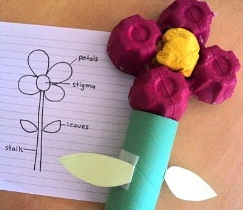 petals
stigma
leaves
stalk